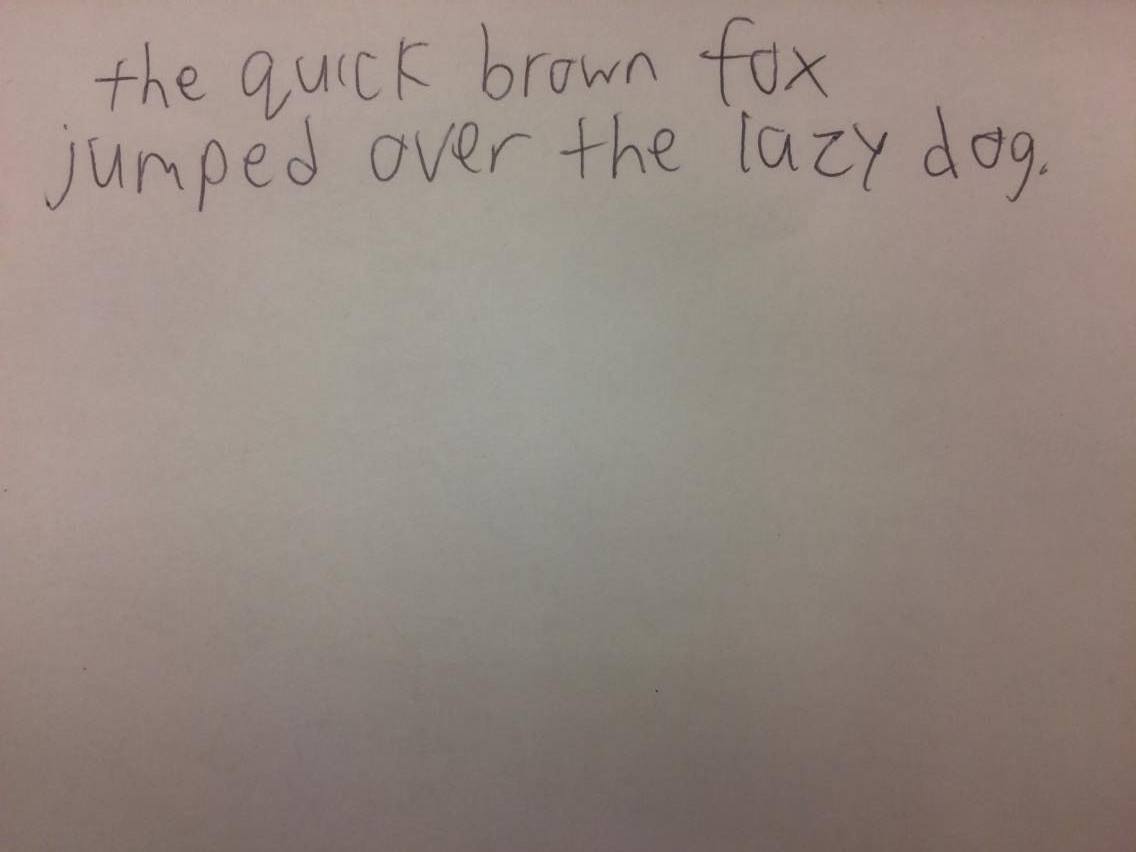 the quick brown fox
jumped over the lazy dog.